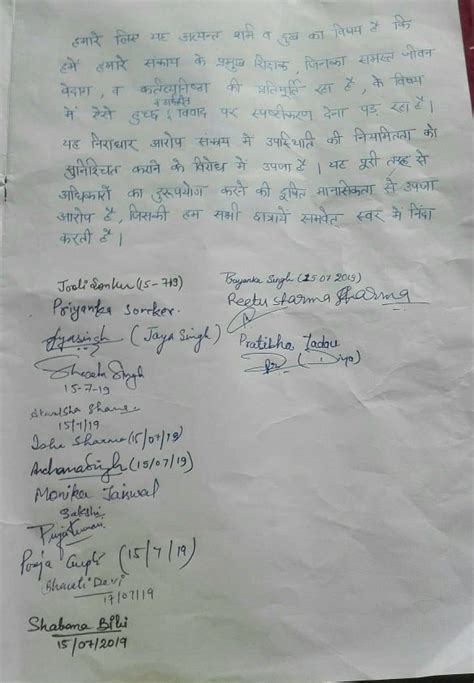 हमारे लिए यह अत्यन्त शर्म व दुख का विषय है कि
हमें हमारे संकाय के प्रमुख शिक्षक, जिनका समस्त जीवन
बेदाग, व कर्तव्यनिष्ठा की प्रतिमूर्ति रहा है, के विषय
में ऐसे तुच्छ विवाद पर स्पष्टीकरण देना पड़ रहा है।
यह निराधार आरोप संकाय में उपस्थिति की नियमितता को
सुनिश्चित कराने के विरोध में उपजा है। यह पूरी तरह से
अधिकारों का दुरूपयोग करने की दूषित मानसिकता से उपजा
आरोप है, जिसकी हम सभी छात्रायें समवेत स्वर में निंदा
करती है।
Jooli Sonker (15-7-19)
Priyanka Singh (15.07.2019)
Priyanka Sonker.
Reetu Sharma Sharma
Jayasingh (Jaya Singh)
Pratibha Yadav
Shweta Singh
(Divya)
15-7-19
15/7/19
Isha Sharma (15/07/19)
Archana Singh (15/07/19)
Monika Jaiswal
Sakshi
Puja Kumari
Pooja Gupta (15/7/19)
Bharti Devi
17/07/19
Shabana Bibi
15/07/2019